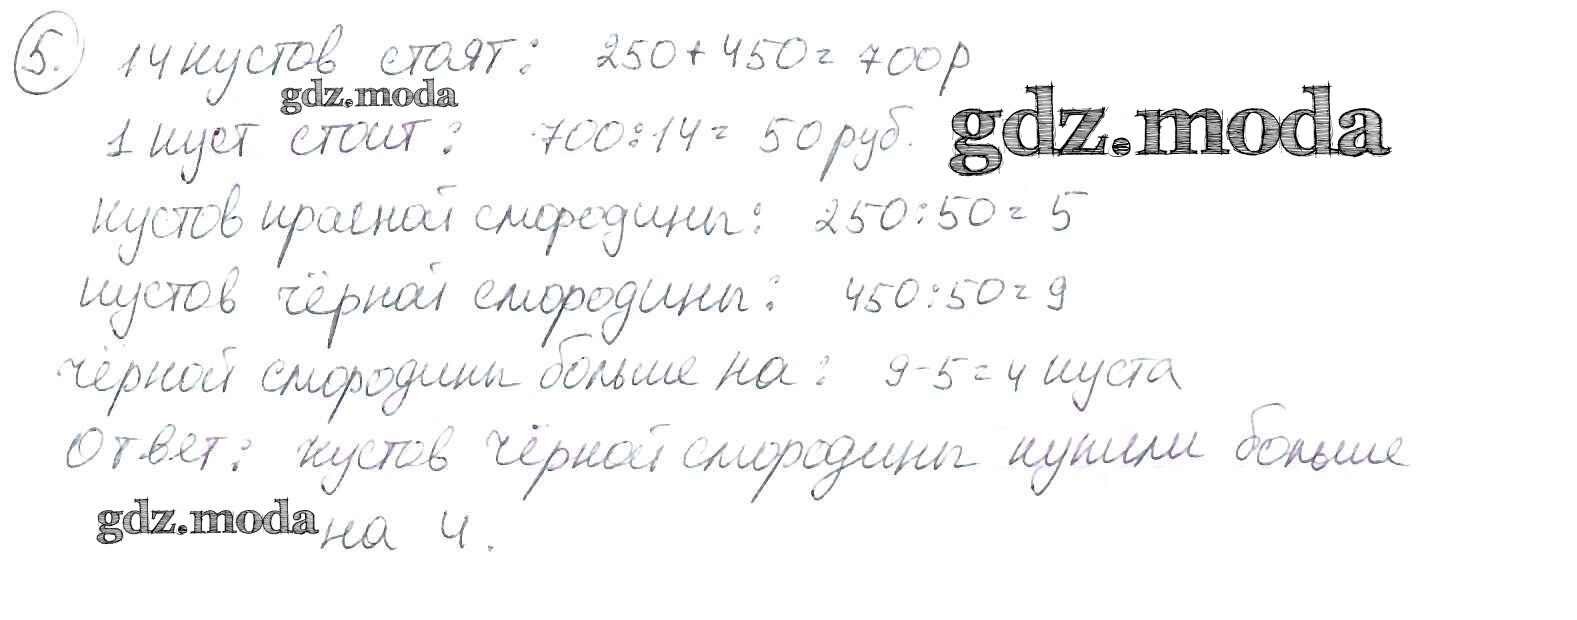 5. 14 кустов стоят: 250+450= 700р
gdz.moda
1 куст стоит: 700:14= 50 руб. gdz.moda
Кустов красной смородины: 250:50= 5
Кустов чёрной смородины: 450:50= 9
Чёрной смородины больше на: 9-5=4 куста
Ответ: кустов чёрной смородины купили больше
gdz.moda на 4.